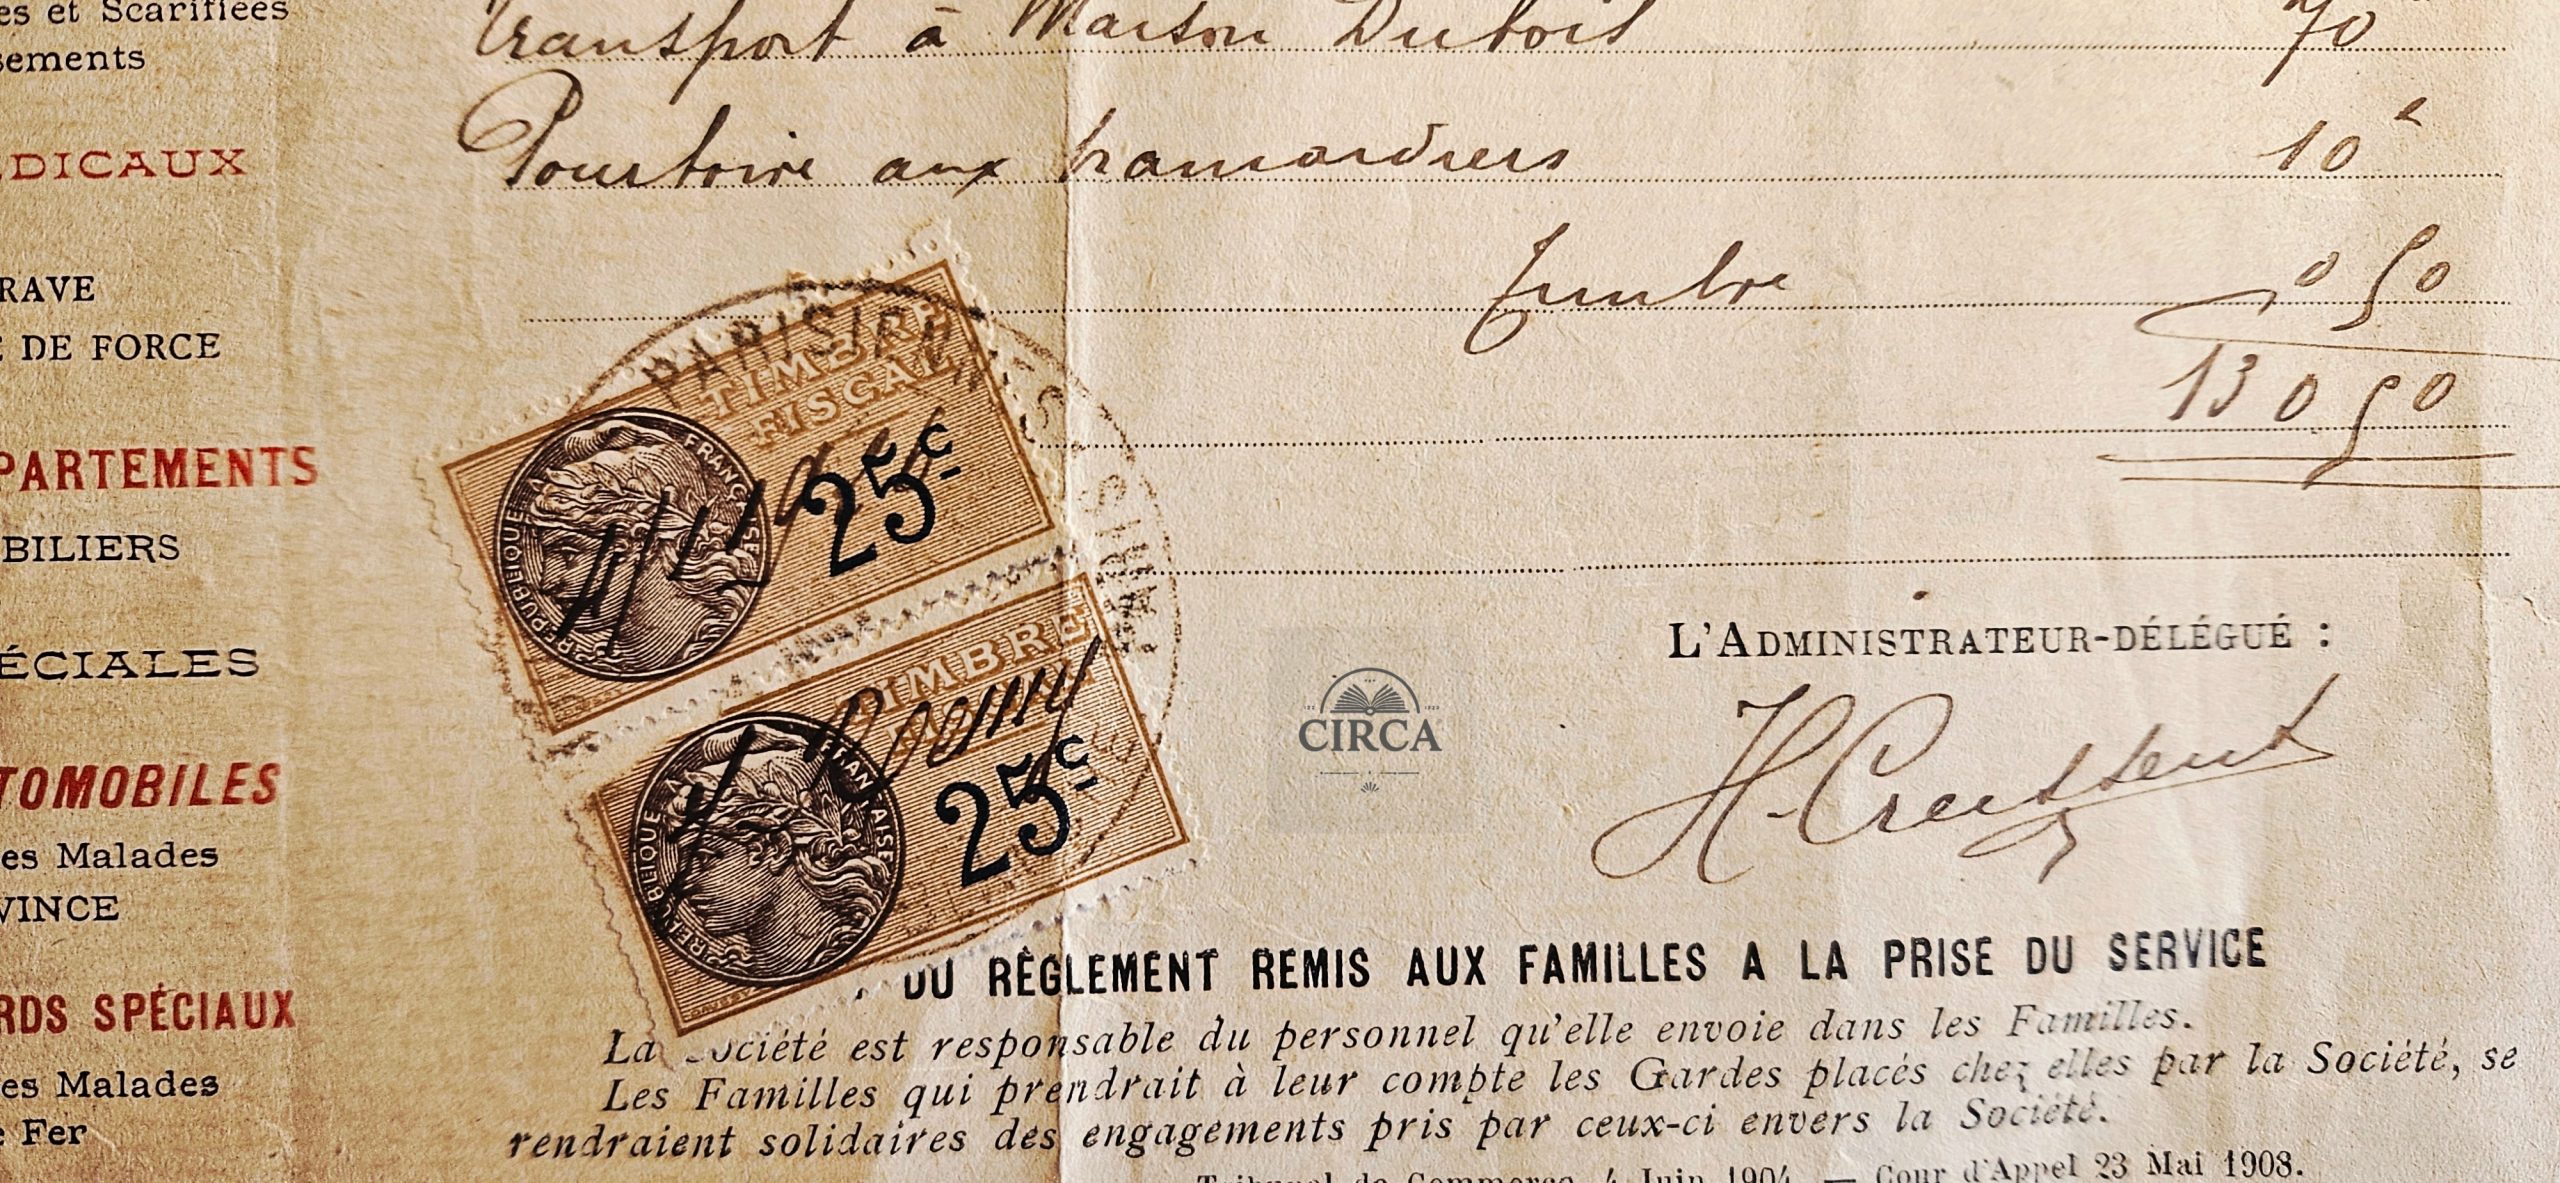 es et Scarifiées
sements
DICAUX
RAVE
DE FORCE
PARTEMENTS
BILIERS
ÉCIALES
TOMOBILES
es Malades
VINCE
RDS SPÉCIAUX
es Malades
Fer
transport à Maison Dubois 70
Pourboire aux 10
Timbre 0 50
130 50
PARIS
TIMBRE
FISCAL
25c
RÉPUBLIQUE FRANÇAISE
TIMBRE
25c
RÉPUBLIQUE FRANÇAISE
L'ADMINISTRATEUR-DÉLÉGUÉ :
CIRCA
DU RÈGLEMENT REMIS AUX FAMILLES A LA PRISE DU SERVICE
La Société est responsable du personnel qu'elle envoie dans les Familles.
Les Familles qui prendrait à leur compte les Gardes placés chez elles par la Société, se
rendraient solidaires des engagements pris par ceux-ci envers la Société.
Tribunal de Commerce, 4 Juin 1904. — Cour d'Appel 23 Mai 1908.